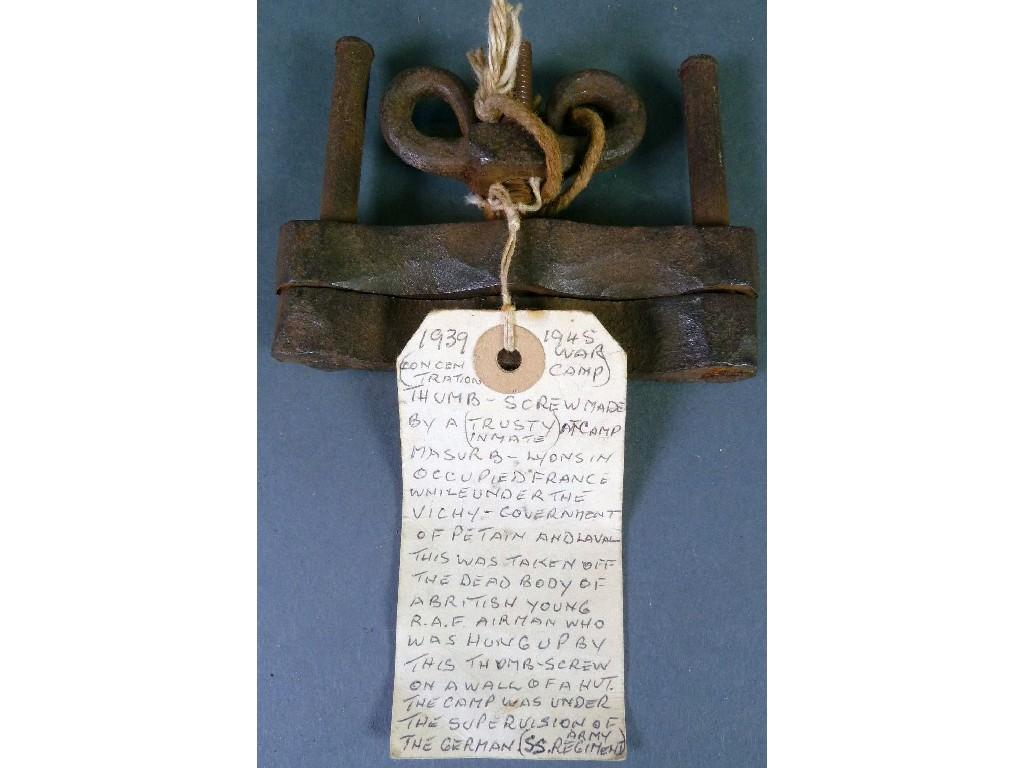 1939 1945
(CONCEN WAR
TRATION CAMP)
THUMB-SCREW MADE
BY A (TRUSTY INMATE) AT CAMP
MASURB-LYONS IN
OCCUPIED FRANCE
WHILE UNDER THE
VICHY-GOVERNMENT
OF PETAIN AND LAVAL
THIS WAS TAKEN OFF
THE DEAD BODY OF
A BRITISH YOUNG
R.A.F. AIRMAN WHO
WAS HUNG UP BY
THIS THUMB-SCREW
ON A WALL OF A HUT.
THE CAMP WAS UNDER
THE SUPERVISION OF
THE GERMAN (SS. ARMY REGIMENT)